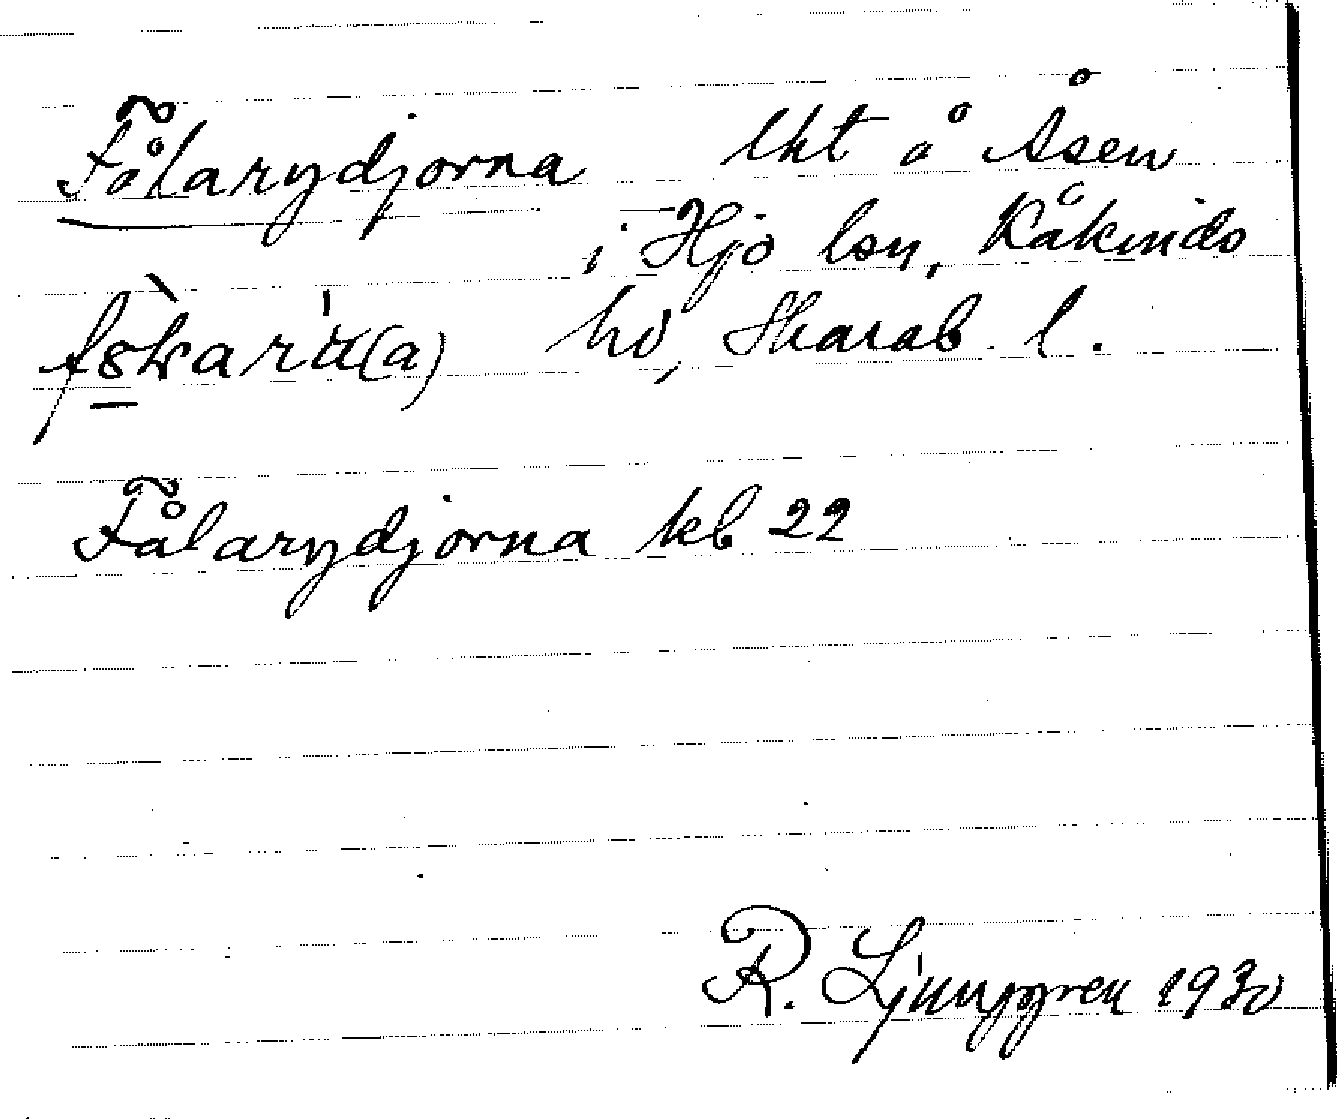 Fålarydjorna lkt å Åsen
i Hjo lsn, Kåkinds
hd, Skarab. l.
Fålarydjorna kb 22
R. Ljunggren 1930